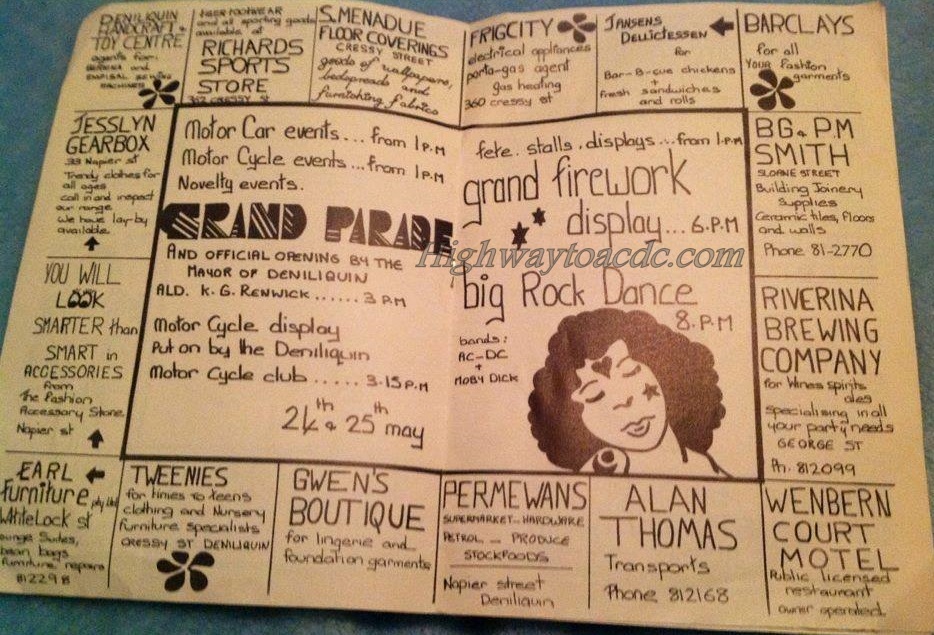 DENILIQUIN
HANDCRAFT &
TOY CENTRE
agents for:
BERNINA and
SEWING
MACHINES
TIGER FOOTWEAR
and all sporting goods
available at
RICHARDS
SPORTS
STORE
CRESSY ST
S. MENADUE
FLOOR COVERINGS
CRESSY STREET
goods of wallpapers,
bedspreads and
furnishing fabrics
FRIGCITY
electrical appliances
porta-gas agent
gas heating
360 cressy st
JANSENS
DELLICTESSEN
for
Bar-B-Que chickens
fresh sandwiches
and rolls
BARCLAYS
for all
YOUR fashion
garments
JESSLYN
GEARBOX
33 Napier st
Trendy clothes for
all ages
call in and inspect
our range
We have lay-by
available.
YOU WILL
LOOK
SMARTER than
SMART in
ACCESSORIES
from
the fashion
Accessory Store
Napier st
Motor Car events... from 1 P.M
Motor Cycle events... from 1 P.M
Novelty events.
GRAND PARADE
AND OFFICIAL OPENING BY THE
MAYOR OF DENILIQUIN
ALD. K. G. RENWICK ...... 3 P.M
Motor Cycle display
Put on by the Deniliquin
Motor Cycle club ..... 3.15 P.M
24th & 25th may
fete. stalls. displays... from 1 P.M
grand firework
display... 6.P.M
Highwaytoacdc.com
big Rock Dance
8.P.M
bands:
AC-DC
+
MOBY DICK
BG & P.M
SMITH
SLOANE STREET
Building Joinery
Supplies
Ceramic tiles, Floors
and walls
Phone 81-2770
RIVERINA
BREWING
COMPANY
for Wines spirits
ales
specialising in all
your party needs
GEORGE ST
Ph. 812099
EARL
furniture pty ltd
WhiteLock st
lounge suites,
bean bags
furniture repairs
812298
TWEENIES
for tinies to teens
clothing and Nursery
furniture specialists
CRESSY ST DENILIQUIN
GWEN'S
BOUTIQUE
for lingerie and
foundation garments
PERMEWANS
SUPERMARKET - HARDWARE
PETROL - PRODUCE
STOCKFOODS
Napier street
Deniliquin
ALAN
THOMAS
Transports
Phone 812168
WENBERN
COURT
MOTEL
Public licensed
restaurant
owner operated